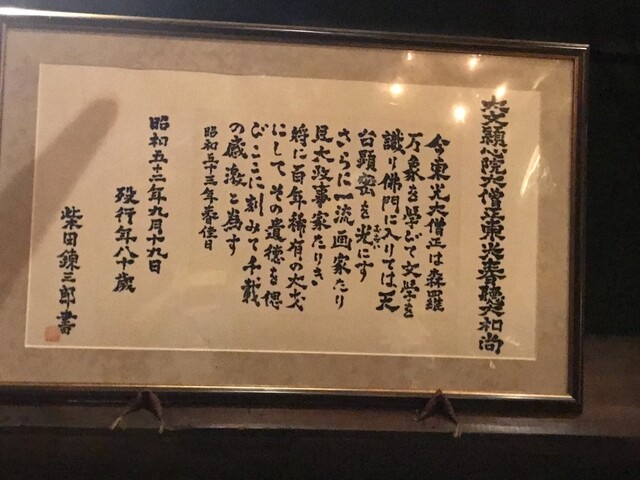 大文頴心院大僧正東光春聽大和尚
今東光大僧正は森羅
万象を學びて文學を
識り佛門に入りては天
台顕密を光にす
さらに一流画家たり
且大政事家たりき
將に百年稀有の大丈
にしてその遺徳を偲
びここに刻みて千載
の感激と為す
昭和五十三年春佳日
昭和五十二年九月十九日
歿行年八十歳
柴田錬三郎書